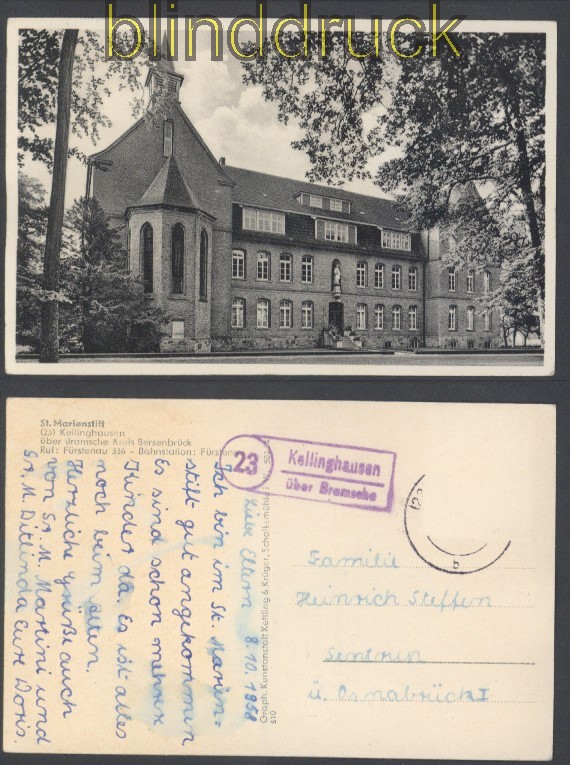 blinddruck
St. Marienstift
(23) Kellinghausen
über Bramsche Kreis Bersenbrück
Ruf: Fürstenau 336 - Bahnstation: Fürstenau
23
Kellinghausen
über Bramsche
Liebe Eltern 8.10.1958
Ich bin im St. Marien=
stift gut angekommen
Es sind schon mehrere
Kinder da. Es ist alles
noch beim alten.
Herzliche Grüße auch
von Sr. M. Martini und
Sr. M. Ditlinda Eure Doris.
Graph. Kunstanstalt Kettling & Krüger, Schalksmühle
510
Familie
Heinrich Steffen
ü. Osnabrück I